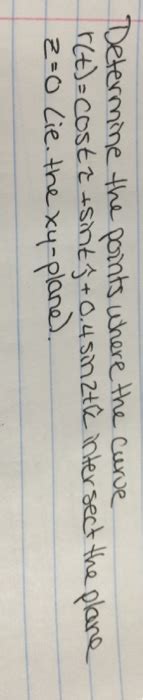 Determine the points where the curve
r(t)=cost î +sint ĵ + 0.4 sin 2t k̂ intersect the plane
z=0 (ie. the xy-plane).